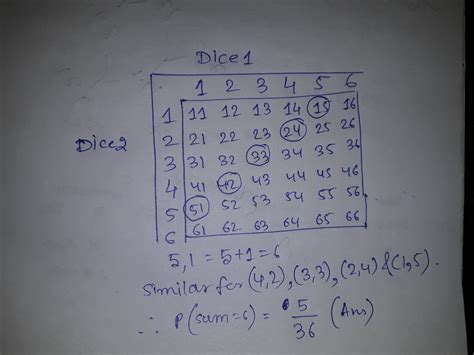 Dice 1
1 2 3 4 5 6
Dice2
1 11 12 13 14 15 16
2 21 22 23 24 25 26
3 31 32 33 34 35 36
4 41 42 43 44 45 46
5 51 52 53 54 55 56
6 61 62 63 64 65 66
5,1 = 5+1=6
Similar for (4,2), (3,3), (2,4) & (1,5).
∴ P(sum=6) = 5/36 (Ans)